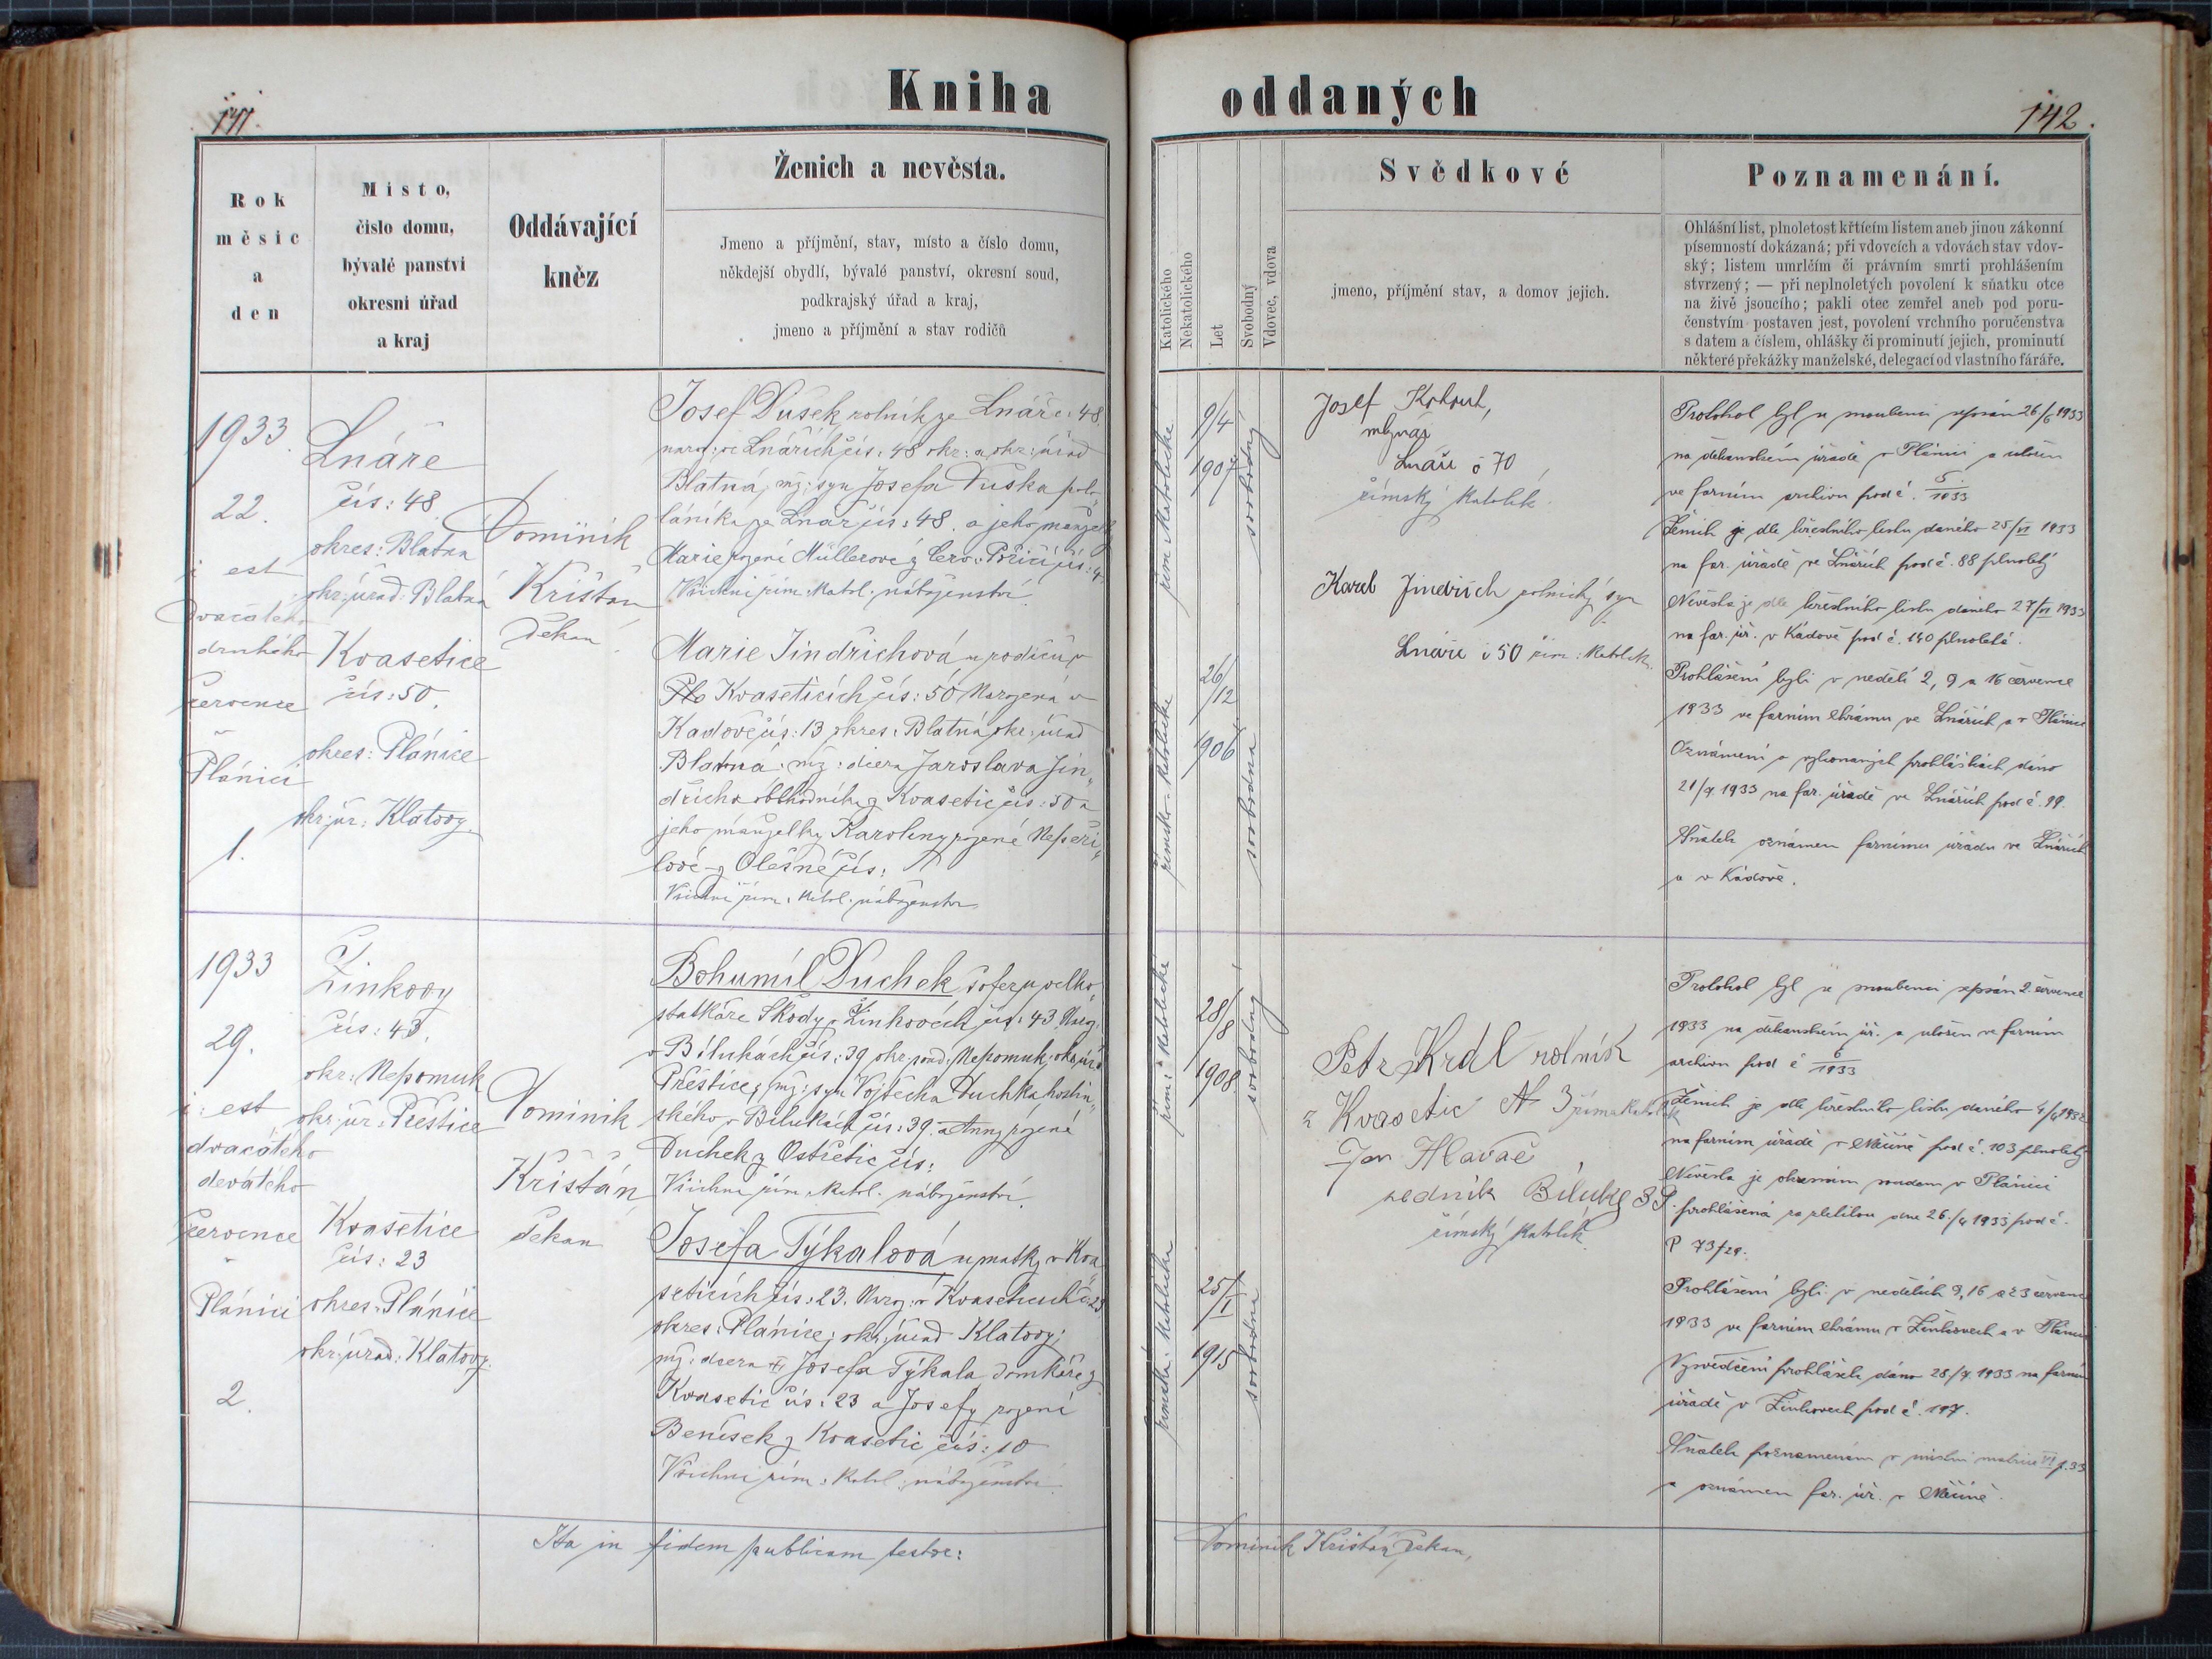 Kniha oddaných
141.
142.
Rok
měsic
a
den
Misto,
čislo domu,
bývalé panstvi
okresni úřad
a kraj
Oddávající
kněz
Ženich a nevěsta.
Jmeno a příjmění, stav, místo a číslo domu,
někdejší obydlí, bývalé panství, okresní soud,
podkrajský úřad a kraj,
jmeno a příjmění a stav rodičů
Katolického
Nekatolického
Let
Svobodný
Vdovec, vdova
Svědkové
jmeno, příjmění stav, a domov jejich.
Poznamenání.
Ohlášní list, plnoletost křtícím listem aneb jinou zákonní
písemností dokázaná; při vdovcích a vdovách stav vdov-
ský; listem umrlčím či právním smrti prohlášením
stvrzený; — při neplnoletých povolení k sňatku otce
na živě jsoucího; pakli otec zemřel aneb pod poru-
čenstvím postaven jest, povolení vrchního poručenstva
s datem a číslem, ohlášky či prominutí jejich, prominutí
některé překážky manželské, delegací od vlastního fáráře.
1933
22.
i est
dvacátého
druhého
července
v
Plánici
1.
Lnáře
čís: 48.
okres: Blatna
okr: úřad: Blatná
Kvasetice
čís: 50.
okres: Plánice
okr: úr: Klatovy.
Dominik
Krištan
děkan
Josef Dušek, rolník ze Lnář č: 48,
naroz: ve Lnářích čís: 48 okr: a okr: úřad
Blatná, mž: syn Josefa Duška polo-
láníka ze Lnář čís: 48. a jeho manželky
Marie rozené Müllerové z Červ: Poříčí čís: 4.
Všichni řím: katol. náboženství.
Marie Jindřichová u rodičů v
Kvaseticích čís: 50 Narozená v
Kadově čís: 13 okres: Blatná okr: úřad
Blatná: mž: dcera Jaroslava Jin„
dřicha obchodníka z Kvasetic čís: 50 a
jeho manželky Karoliny rozené Nepeři„
lové z Olešné čís:
Všichni řím: katol. náboženství.
řím: katolické
9/4
1907
svobodný
římsko-katolické
26/12
1906
svobodná
Josef Kohout,
mlynář
Lnáře č 70
římský katolík.
Karel Jindřich rolnický syn
Lnáře č 50 řím: katolík.
Protokol byl se snoubenci sepsán 26/6 1933
na děkanském úřadě v Plánici a uložen
ve farním archivu pod č. 5/1933
Ženich je dle křestního listu daného 25/VI 1933
na far. úřadě ve Lnářích pod č. 88 plnoletý
Nevěsta je dle křestního listu daného 27/VI 1933
na far. úř. v Kádově pod č. 140 plnoletá.
Prohlášeni byli v neděli 2, 9 a 16 července
1933 ve farním chrámu ve Lnářích a v Plánici
Oznámení o vykonaných prohláškách dáno
21/7. 1933 na far. úřadě ve Lnářích pod č. 99.
Sňatek oznámen farnímu úřadu ve Lnářích
a v Kádově.
1933
29.
i: est
dvacátého
devátého
července
v
Plánici
2.
Žinkovy
čís: 43.
okr: Nepomuk
okr: úr: Přeštice
Kvasetice
čís: 23
okres: Plánice
okr: úřad: Klatovy.
Dominik
Krištán
děkan
Bohumíl Duchek šofer u velko„
statkáře Škody v Žinkovech čís: 43 Naroz:
v Bílukách čís: 39 okr. soud: Nepomuk, okr. úř:
Přeštice, mž: syn Vojtěcha Duchka hostin„
ského v Bílukách čís: 39. a Anny rozené
Duchek z Ostřetic čís:
Všichni řím: katol. náboženství.
Josefa Týkalová u matky v Kva„
seticích čís: 23. Naroz: v Kvaseticích č: 23
okres: Plánice; okr: úřad Klatovy;
mž: dcera Josefa Týkala domkáře z
Kvasetic čís: 23 a Josefy rozené
Benísek z Kvasetic čís: 10
Všichni řím: katol. náboženství.
řím: katolické
28/8
1908.
svobodný
římská: katolická
25/I
1915
svobodná
Petr Král rolník
z Kvasetic No 3 říms. katolík
Jan Hlaváč
sedník Bíluky 39.
římský katolík.
Protokol byl se snoubenci sepsán 2. července
1933 na děkanském úř. a uložen ve farním
archivu pod č 6/1933
Ženich je dle křestního listu daného 4/6 1932
na farním úřadě v Měčíně pod č. 103 plnoletý
Nevěsta je okresním soudem v Plánici
prohlášena za zletilou dne 26./6 1933 pod č.
P 73/29.
Prohlášeni byli v nedělích 9, 16 a 23 července
1933 ve farním chrámu v Žinkovech a v Plánici
Vysvědčení prohlášek dáno 28/7. 1933 na farním
úřadě v Žinkovech pod č. 197.
Sňatek poznamenán v místní matrice VI p. 33
a oznámen far. úř. v Měčíně.
Ita in fidem publicam testor: Dominik Krištán, děkan,